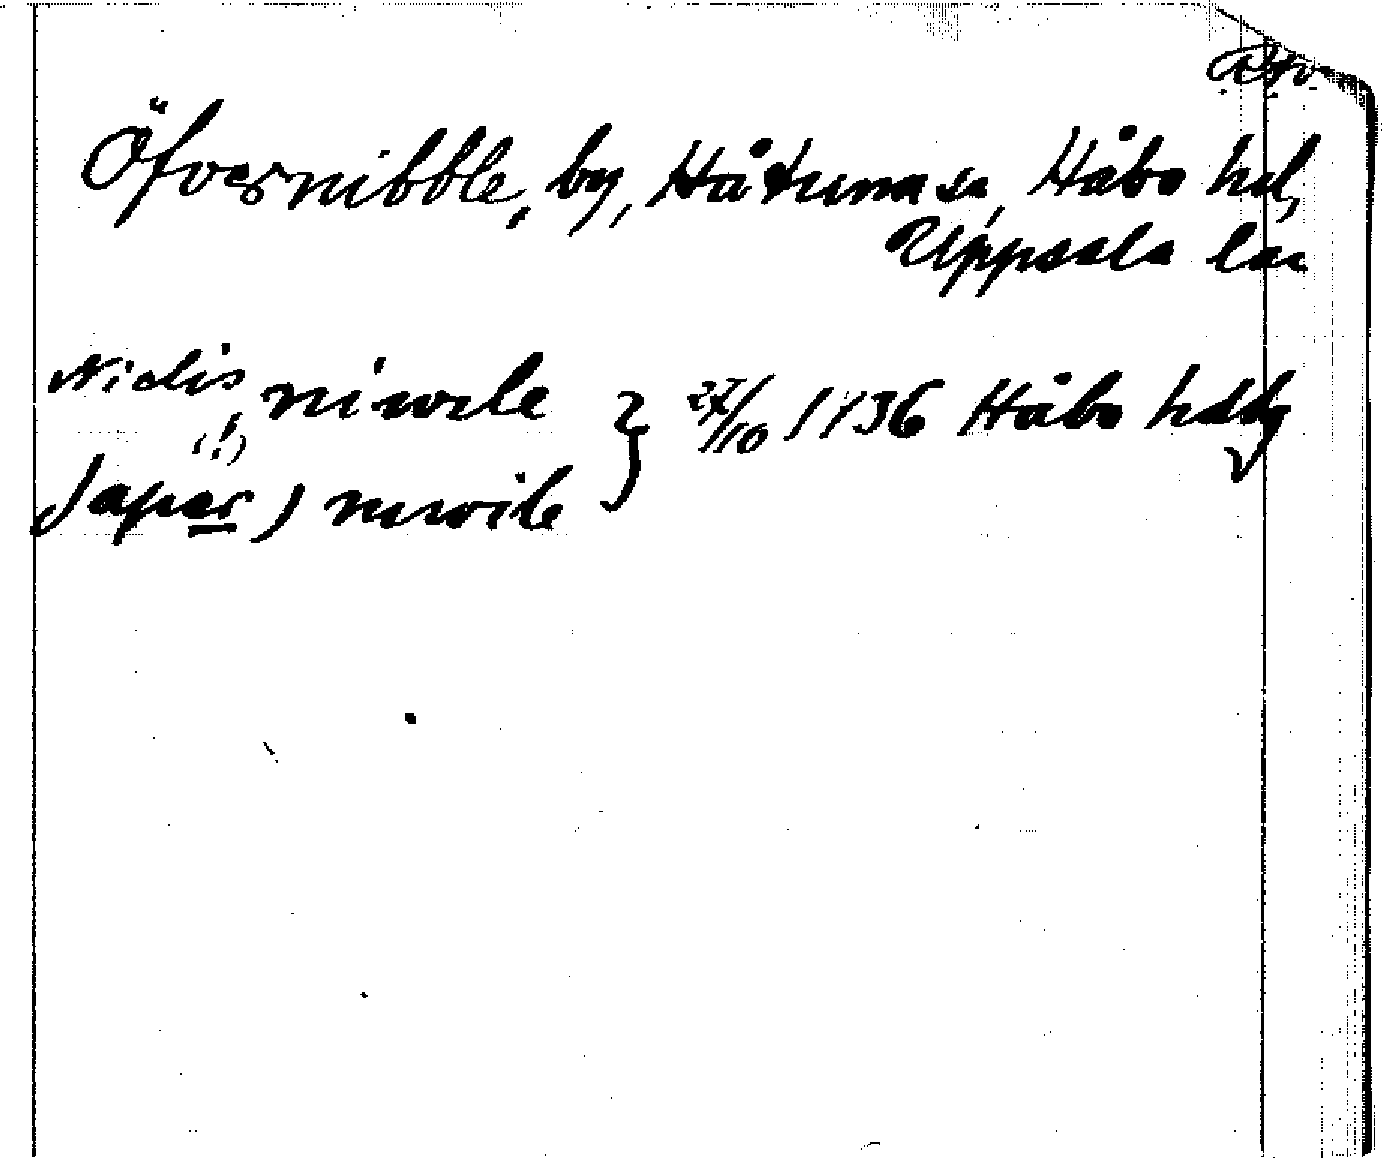 Öfvernibble, by, Håtuna sn, Håbo hd,
Uppsala län
niwele } 27/10 1736 Håbo hdsg
(!)
Japer) nerwile